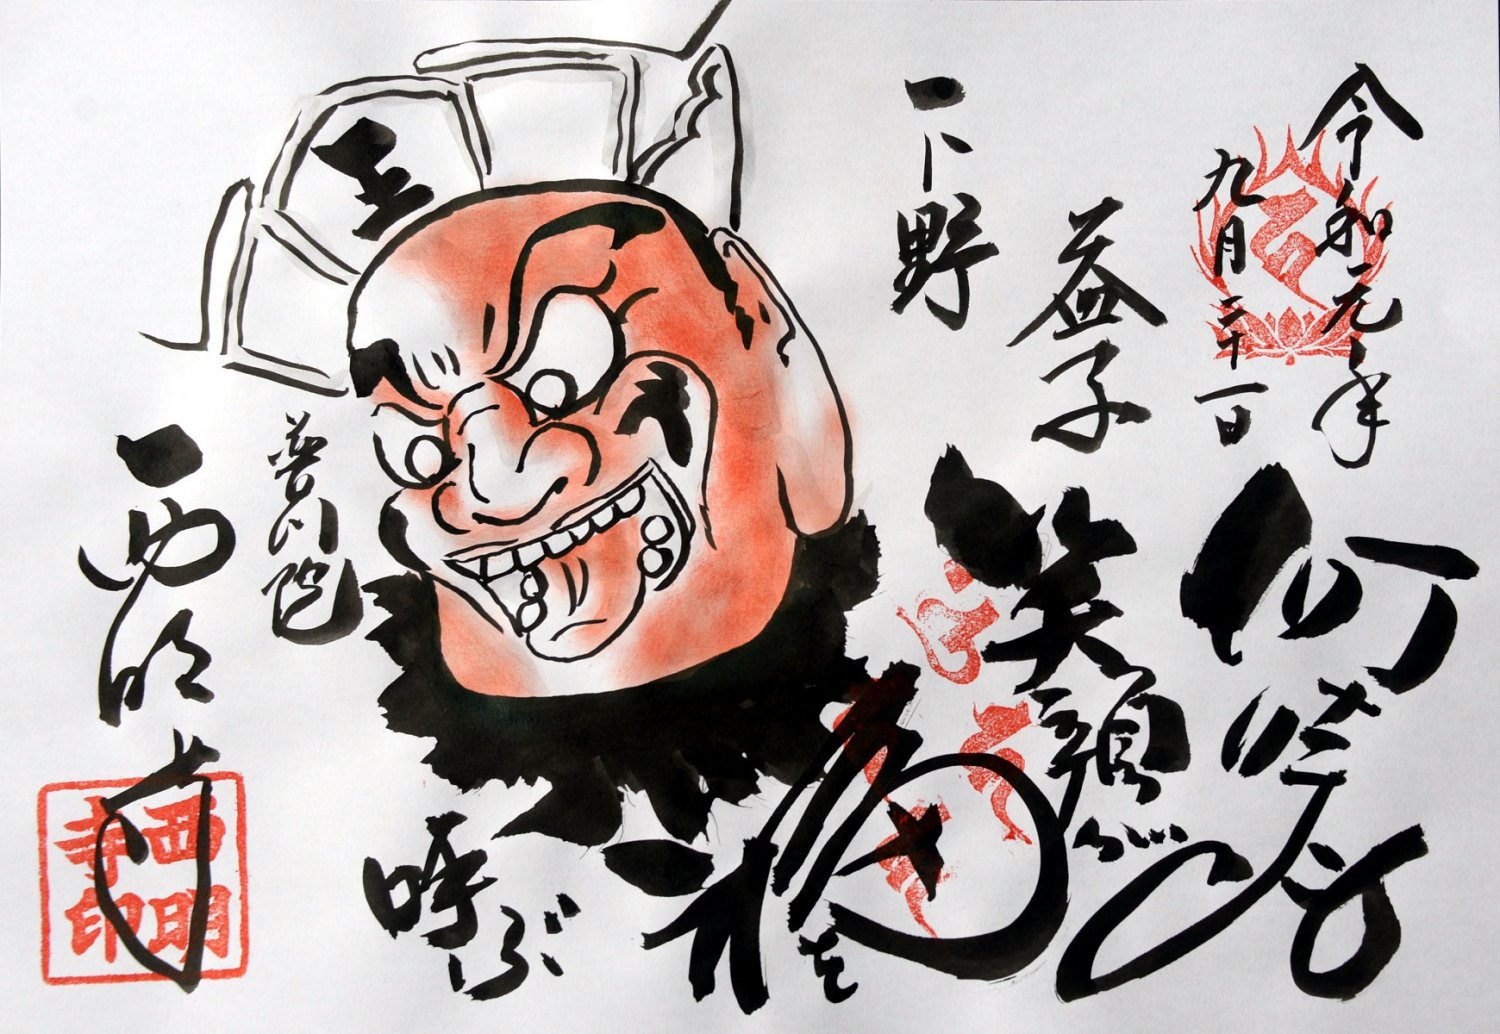 令和元年
九月二十一日
益子
下野
何時も
笑顔が
福を
呼ぶ
王
普門院
西明寺
西明
寺印